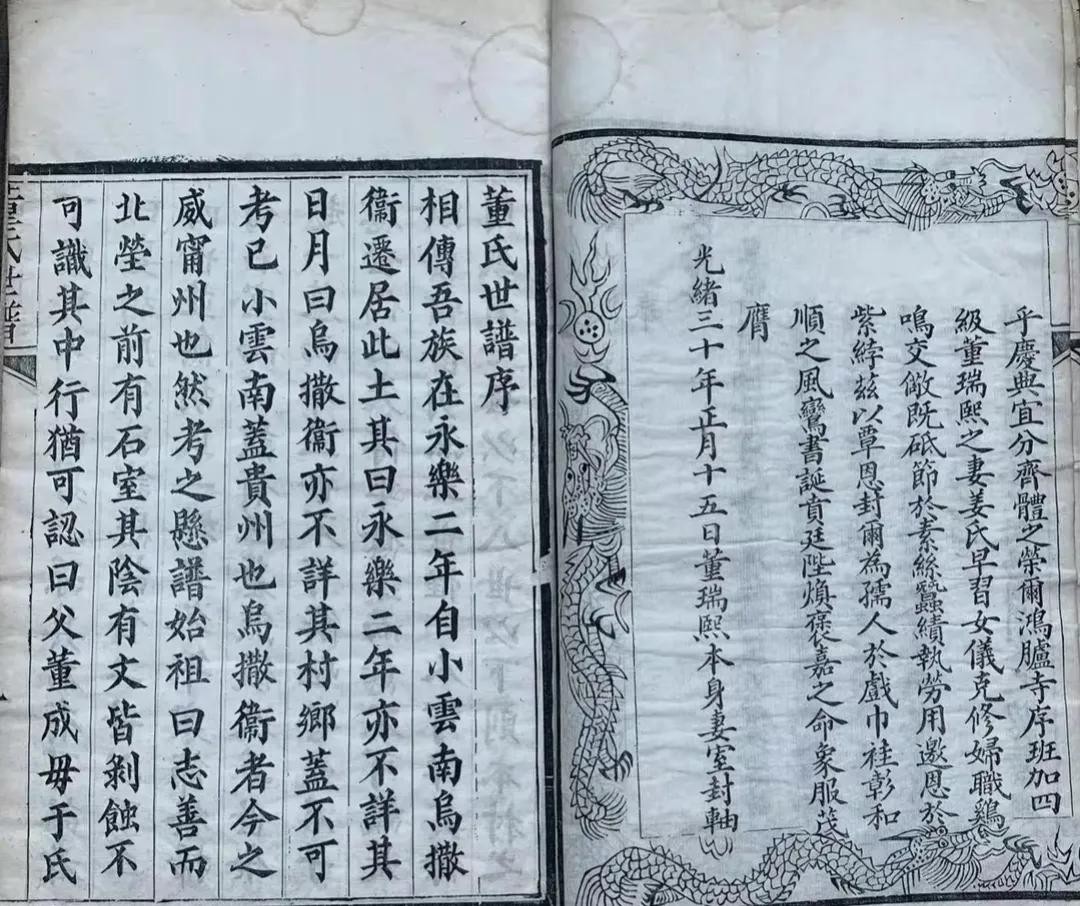 乎慶典宜分齊體之榮爾鴻臚寺序班加四
級董瑞熙之妻姜氏早習女儀克修婦職鷄
鳴交儆既砥節於素絲蠶績執勞用邀恩於
紫綍茲以覃恩封爾為孺人於戲巾袿彰和
順之風鸞書誕賁廷陛煥褒嘉之命象服茂
膺
光緒三十年正月十五日董瑞熙本身妻室封軸
董氏世譜序
相傳吾族在永樂二年自小雲南烏撒
衞遷居此土其曰永樂二年亦不詳其
日月曰烏撒衞亦不詳其村鄉蓋不可
考已小雲南蓋貴州也烏撒衞者今之
威甯州也然考之懸譜始祖曰志善而
北塋之前有石室其陰有文皆剝蝕不
可識其中行猶可認曰父董成毋于氏
董氏世譜